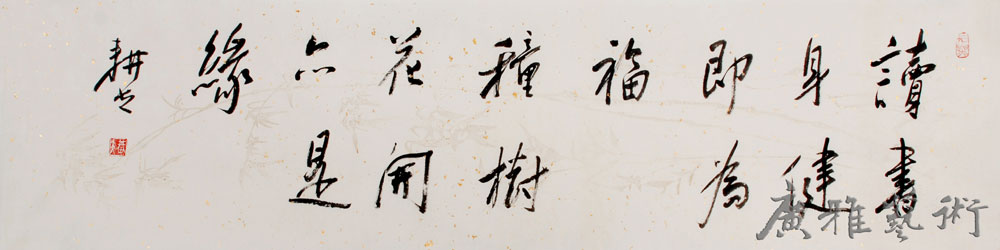 讀書
身健
即為
福
種樹
花開
亦是
緣
耕
廣雅藝術